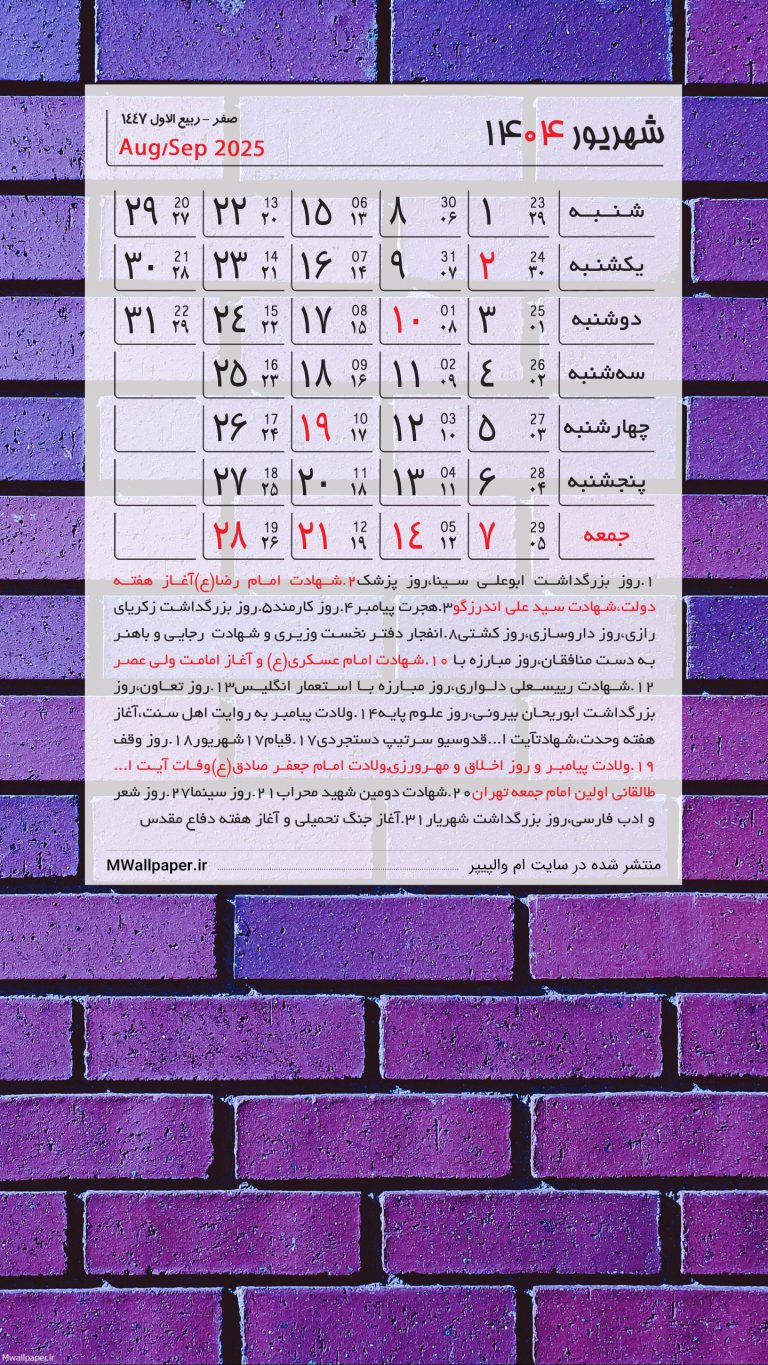 شهریور ۱۴۰۴
صفر - ربیع الاول ۱٤٤٧
Aug/Sep 2025
شنبه ۱ 23 ۲۹ ۸ 30 ۰۶ ۱۵ 06 ۱۳ ۲۲ 13 ۲۰ ۲۹ 20 ۲۷
یکشنبه ۲ 24 ۳۰ ۹ 31 ۰۷ ۱۶ 07 ۱۴ ۲۳ 14 ۲۱ ۳۰ 21 ۲۸
دوشنبه ۳ 25 ۰۱ ۱۰ 01 ۰۸ ۱۷ 08 ۱۵ ۲۴ 15 ۲۲ ۳۱ 22 ۲۹
سه‌شنبه ۴ 26 ۰۲ ۱۱ 02 ۰۹ ۱۸ 09 ۱۶ ۲۵ 16 ۲۳
چهارشنبه ۵ 27 ۰۳ ۱۲ 03 ۱۰ ۱۹ 10 ۱۷ ۲۶ 17 ۲۴
پنجشنبه ۶ 28 ۰۴ ۱۳ 04 ۱۱ ۲۰ 11 ۱۸ ۲۷ 18 ۲۵
جمعه ۷ 29 ۰۵ ۱۴ 05 ۱۲ ۲۱ 12 ۱۹ ۲۸ 19 ۲۶
۱.روز بزرگداشت ابوعلی سینا،روز پزشک۲.شهادت امام رضا(ع)آغاز هفته
دولت،شهادت سید علی اندرزگو۳.هجرت پیامبر۴.روز کارمند۵.روز بزرگداشت زکریای
رازی،روز داروسازی،روز کشتی۸.انفجار دفتر نخست وزیری و شهادت رجایی و باهنر
به دست منافقان،روز مبارزه با ۱۰.شهادت امام عسکری(ع) و آغاز امامت ولی عصر
۱۲.شهادت رییسعلی دلواری،روز مبارزه با استعمار انگلیس۱۳.روز تعاون،روز
بزرگداشت ابوریحان بیرونی،روز علوم پایه۱۴.ولادت پیامبر به روایت اهل سنت،آغاز
هفته وحدت،شهادتآیت ا...قدوسیو سرتیپ دستجردی۱۷.قیام۱۷شهریور۱۸.روز وقف
۱۹.ولادت پیامبر و روز اخلاق و مهرورزی،ولادت امام جعفر صادق(ع)وفات آیت ا...
طالقانی اولین امام جمعه تهران۲۰.شهادت دومین شهید محراب۲۱.روز سینما۲۷.روز شعر
و ادب فارسی،روز بزرگداشت شهریار۳۱.آغاز جنگ تحمیلی و آغاز هفته دفاع مقدس
منتشر شده در سایت ام والپیپر MWallpaper.ir
Mwallpaper.ir